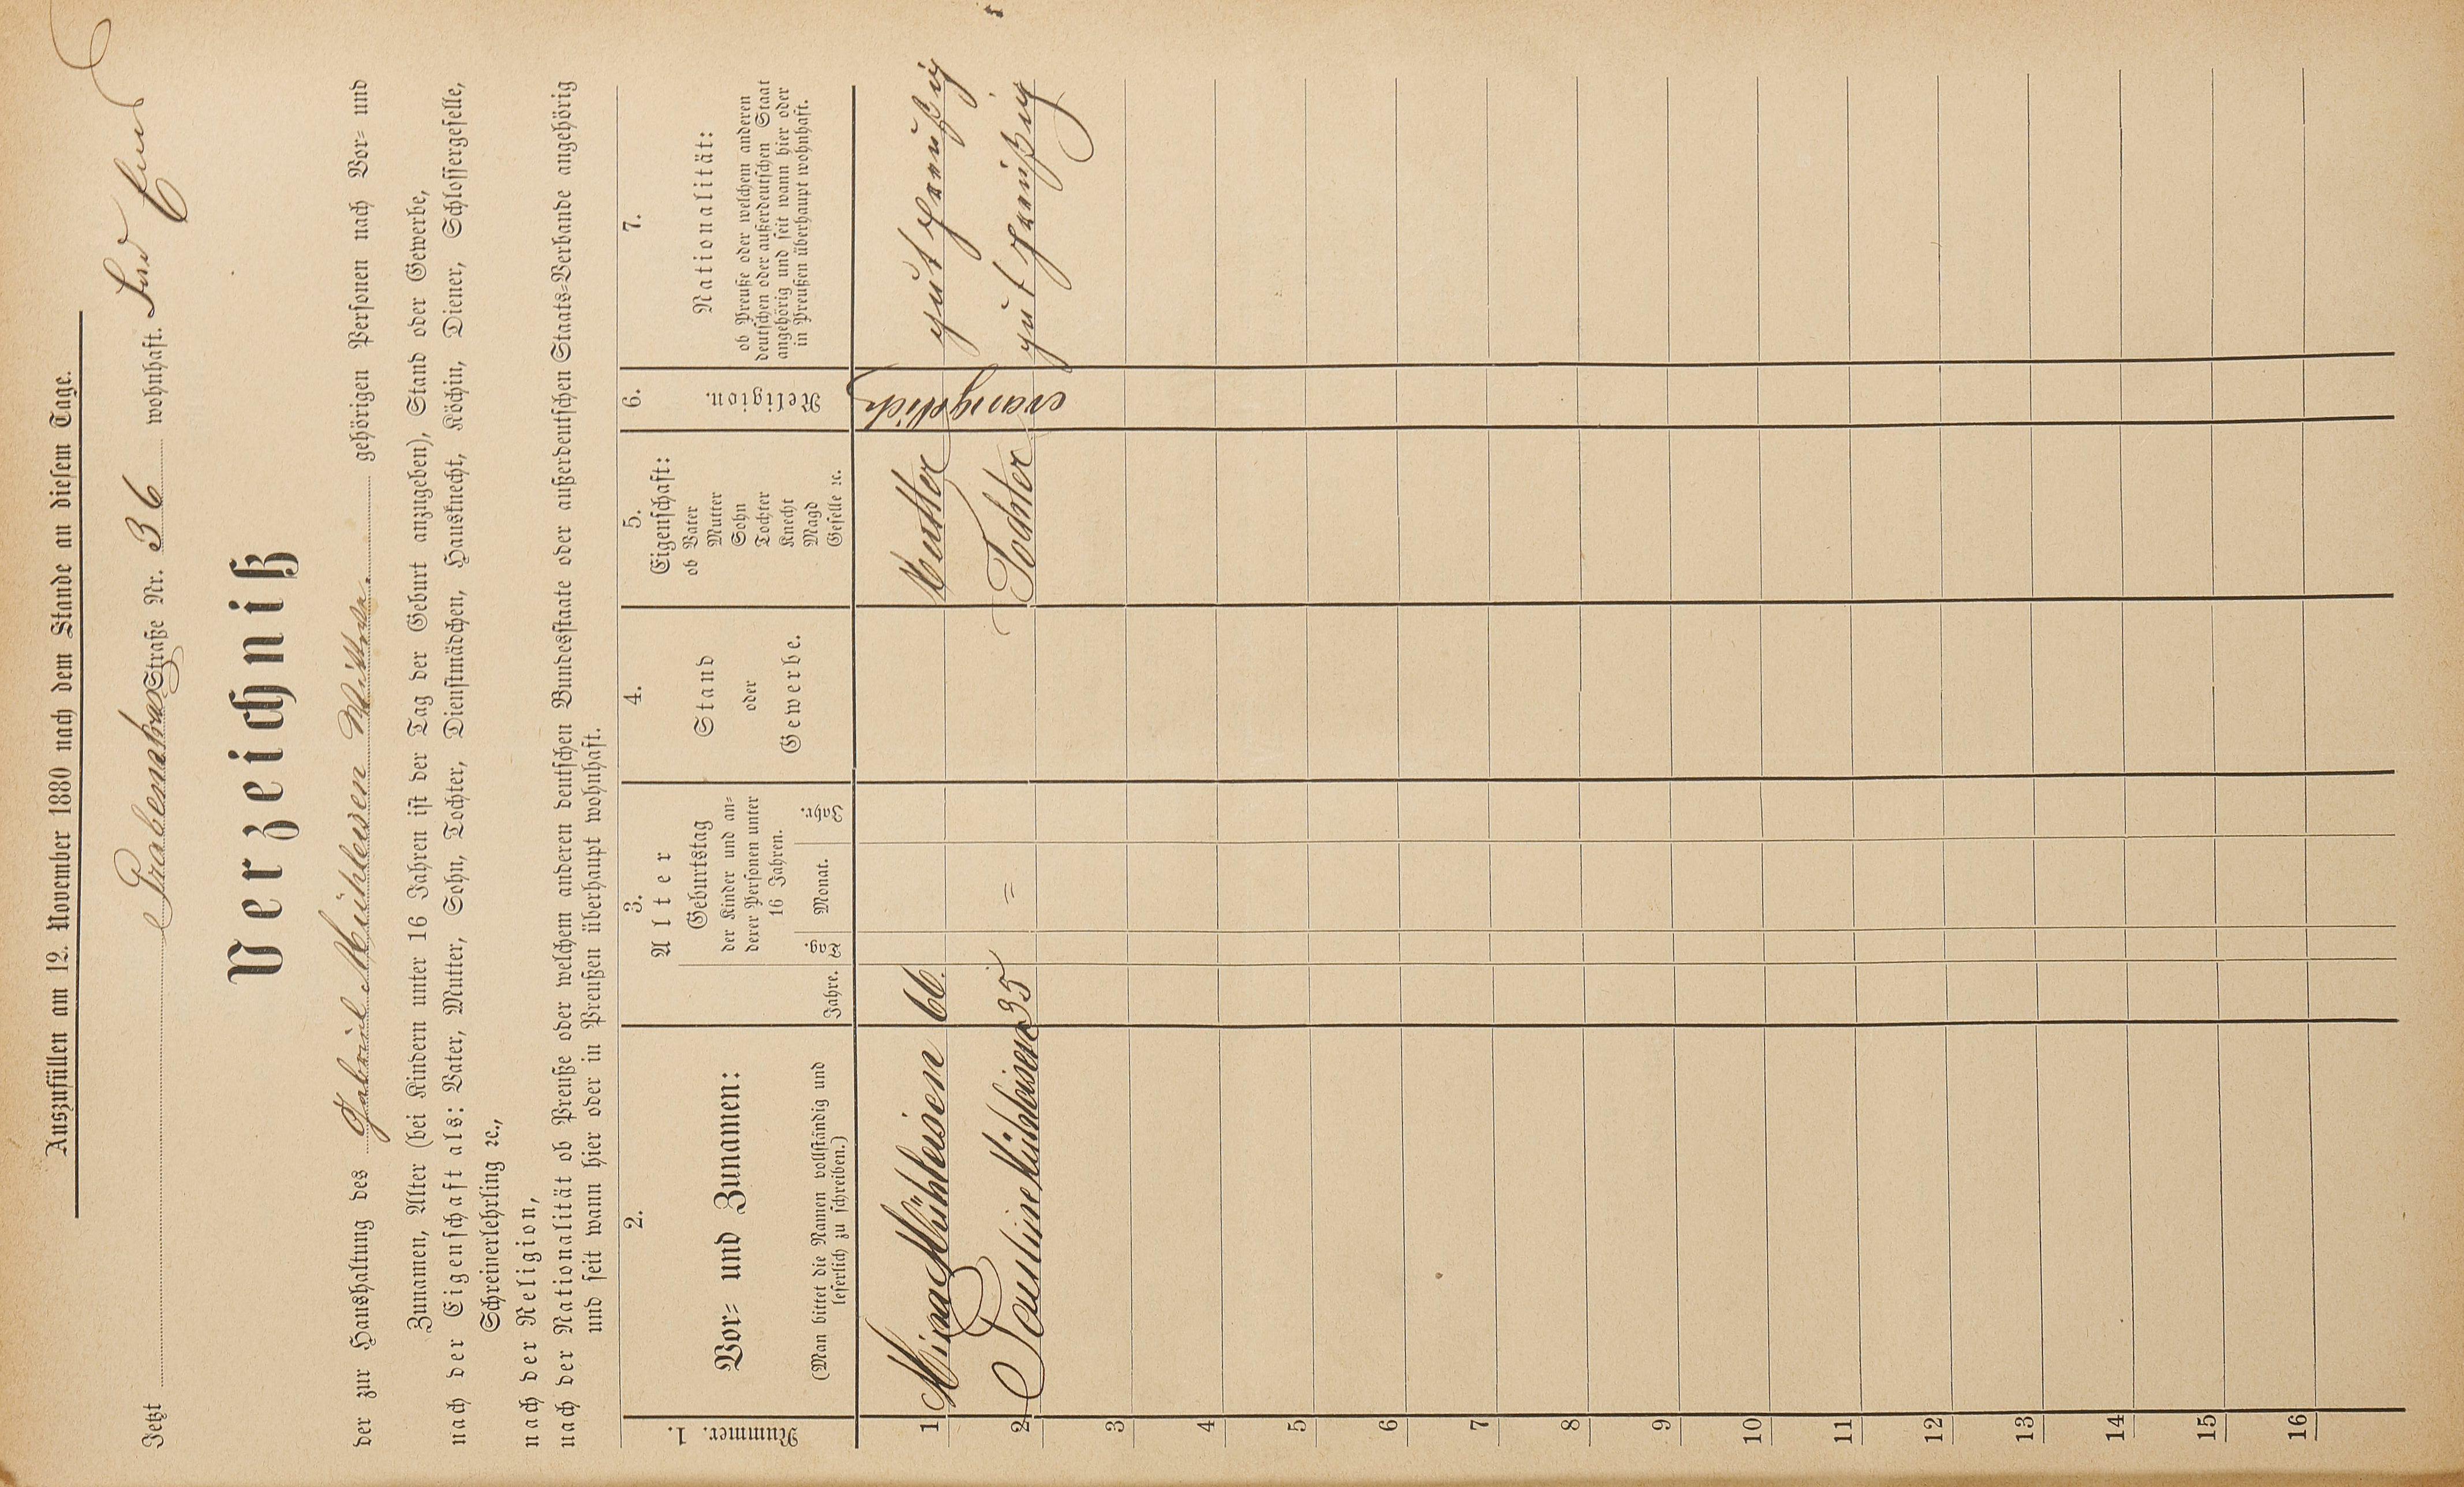 Auszufüllen am 12. November 1880 nach dem Stande an diesem Tage.
Jetzt Grabenstras Straße Nr. 36 wohnhaft.
Verzeichniß
der zur Haushaltung des Gabriel Mühleisen Wittwe. gehörigen Personen nach Vor- und
Zunamen, Alter (bei Kindern unter 16 Jahren ist der Tag der Geburt anzugeben), Stand oder Gewerbe,
nach der Eigenschaft als: Vater, Mutter, Sohn, Tochter, Dienstmädchen, Hausknecht, Köchin, Diener, Schlossergeselle,
Schreinerlehrling ꝛc.,
nach der Religion,
nach der Nationalität ob Preuße oder welchem anderen deutschen Bundesstaate oder außerdeutschen Staats-Verbande angehörig
und seit wann hier oder in Preußen überhaupt wohnhaft.
1. Nummer.
2.
Vor- und Zunamen:
(Man bittet die Namen vollständig und
leserlich zu schreiben.)
3.
Alter
Jahre.
Geburtstag
der Kinder und an-
derer Personen unter
16 Jahren.
Tag. Monat. Jahr.
4.
Stand
oder
Gewerbe.
5.
Eigenschaft:
ob Vater
Mutter
Sohn
Tochter
Knecht
Magd
Geselle ꝛc.
6.
Religion.
7.
Nationalität:
ob Preuße oder welchem anderen
deutschen oder außerdeutschen Staat
angehörig und seit wann hier oder
in Preußen überhaupt wohnhaft.
1 Mina Mühleisen 66. Mutter evangelisch gut preußig
2 Pauline Mühleisen 35 = Tochter gut preußig
3
4
5
6
7
8
9
10
11
12
13
14
15
16